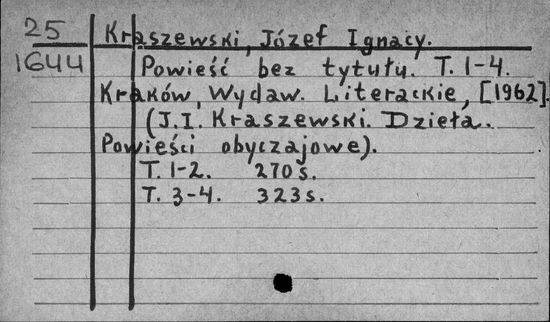 25
1644
Kraszewski, Józef Ignacy.
Powieść bez tytułu. T. 1-4.
Kraków, Wydaw. Literackie, [1962].
(J.I. Kraszewski. Dzieła.
Powieści obyczajowe).
T. 1-2. 270 s.
T. 3-4. 323 s.